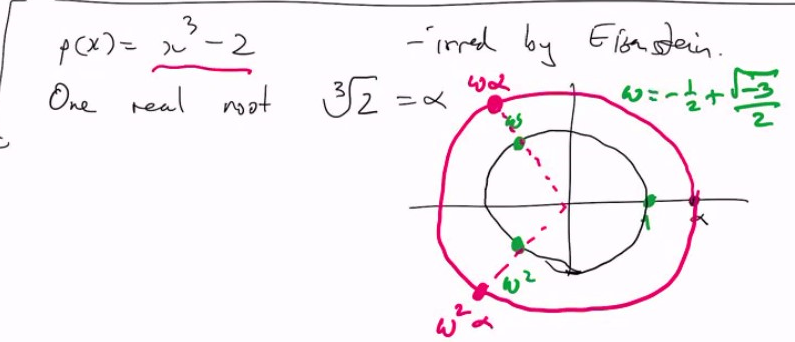 p(x) = x³ - 2 - irred by Eisenstein.
One real root ∛2 = α
ωα
ω = -1/2 + √-3/2
ω
1
α
ω²
ω²α